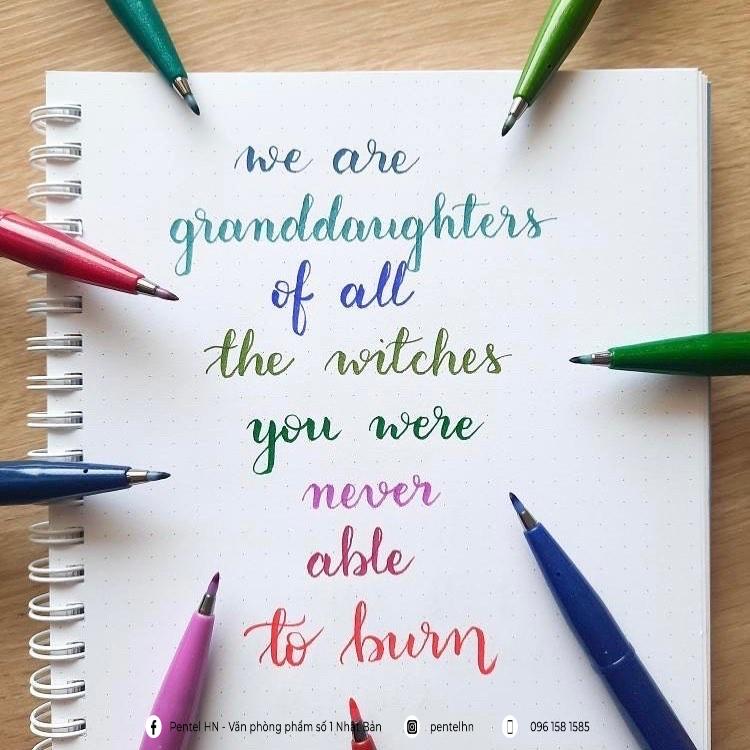 we are
granddaughters
of all
the witches
you were
never
able
to burn
Pentel HN - Văn phòng phẩm số 1 Nhật Bản pentelhn 096 158 1585